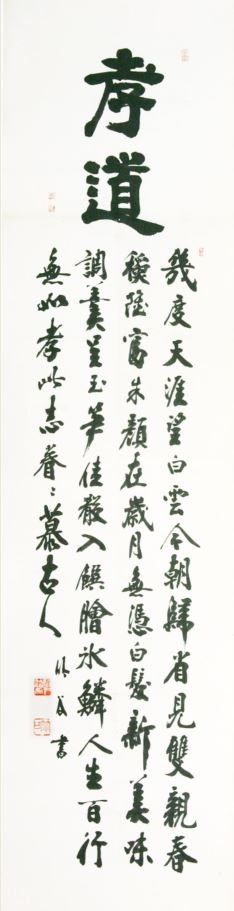 孝道
幾度天涯望白雲今朝歸省見雙親春
穐雖富朱顏在歲月無憑白髮新美味
調羹呈玉笋佳殽入饌膾冰鱗人生百行
無如孝此志眷〻慕古人
書